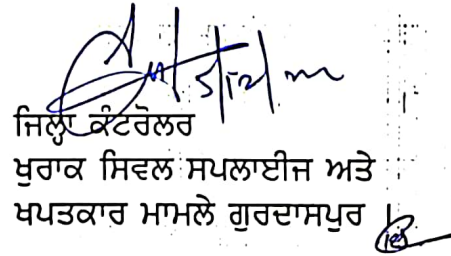 ਜਿਲ੍ਹਾ ਕੰਟਰੋਲਰ
ਖੁਰਾਕ ਸਿਵਲ ਸਪਲਾਈਜ ਅਤੇ
ਖਪਤਕਾਰ ਮਾਮਲੇ ਗੁਰਦਾਸਪੁਰ